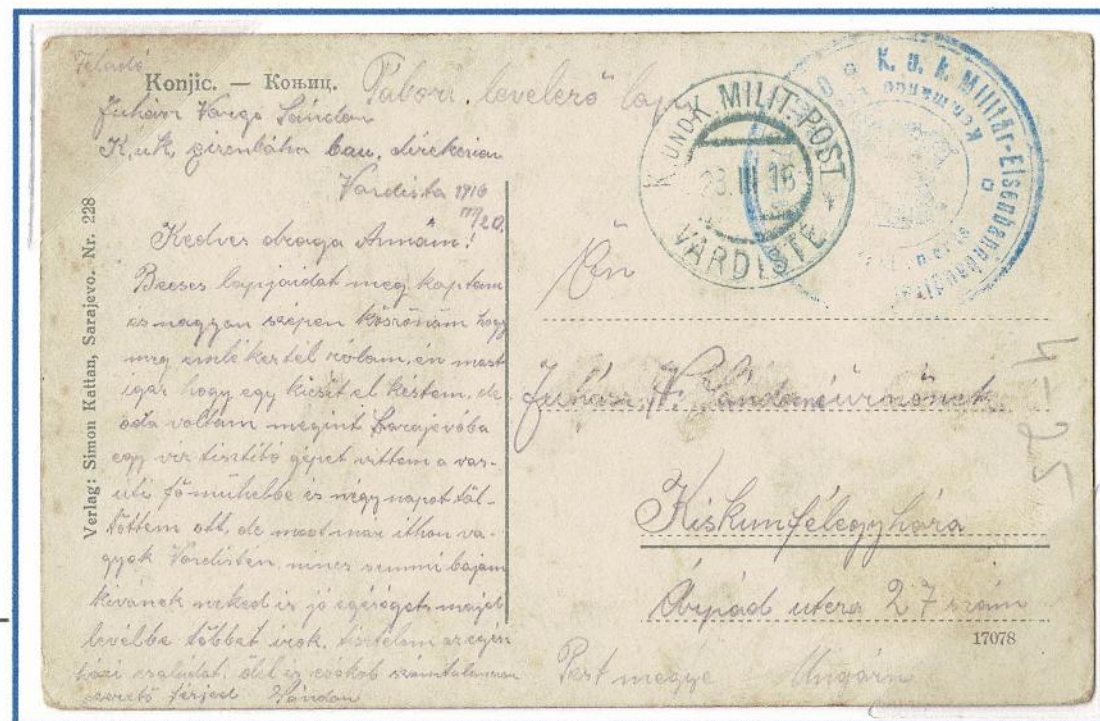 Feladó
Konjic. — Коњиц.
Tábori levelező lap
Juhász Varga Sándor
K. u. k. bau. direkcion
Vardista 1916
III/20.
Kedves drága Annám!
Becses lapjaidat meg kaptam
és nagyon szépen köszönöm hogy
meg emlékeztél rólam, én most
igaz hogy egy kicsit el késtem, de
oda voltam megint Sarajevóba
egy víz tisztitó gépet vittem a vas-
uti főmühelbe és négy napot töl-
töttem ott, de most már itthon va-
gyok Vardistén nincs semmi bajom
kivánok neked is jó egésséget majd
levélbe többet irok. tisztelem az egész
házi családat. ölel és csókol számtalanszor
szerető férjed Sándor
Verlag: Simon Kattan, Sarajevo. Nr. 228
K. UND K. MILIT. POST
23.III.16
VARDISTE
K. u. k. Militär-Eisenbahnbau
An
Juhász V. Sándorné úrnőnek
Kiskunfélegyháza
Árpád utcza 27 szám
17078
Pest megye Ungarn